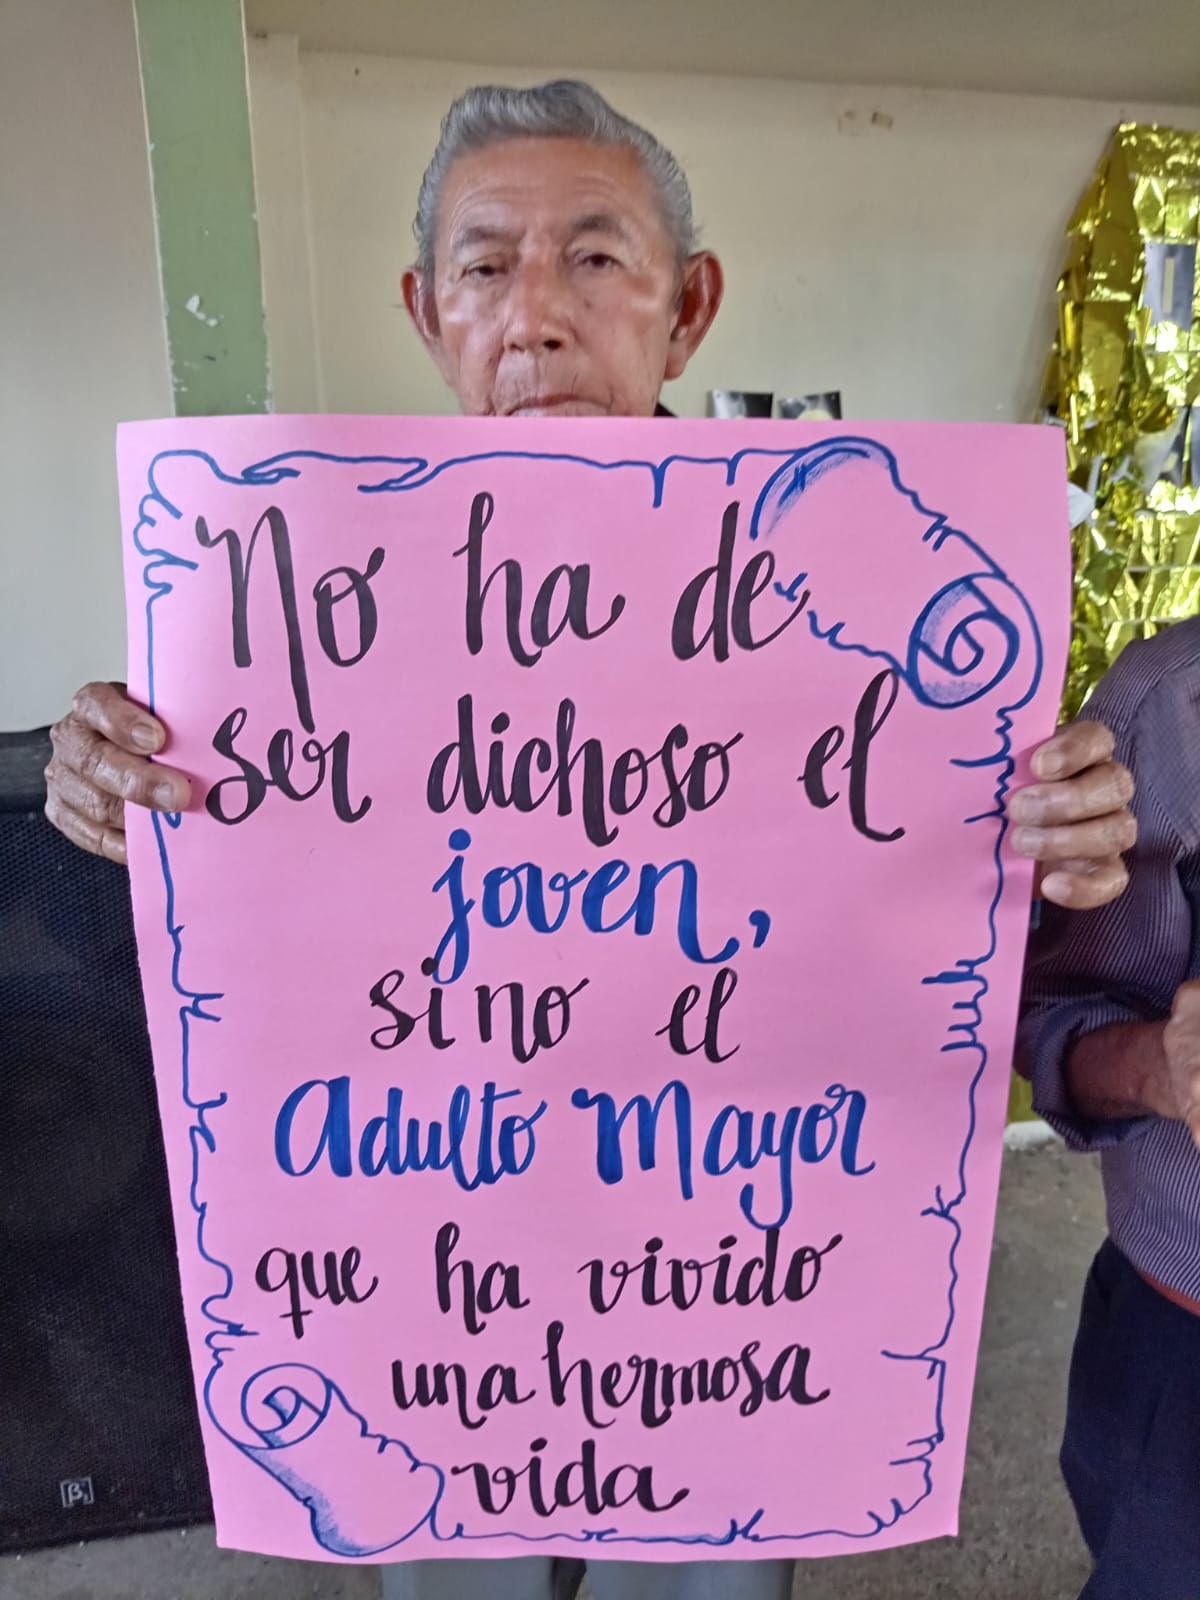 No ha de
ser dichoso el
joven,
sino el
Adulto Mayor
que ha vivido
una hermosa
vida